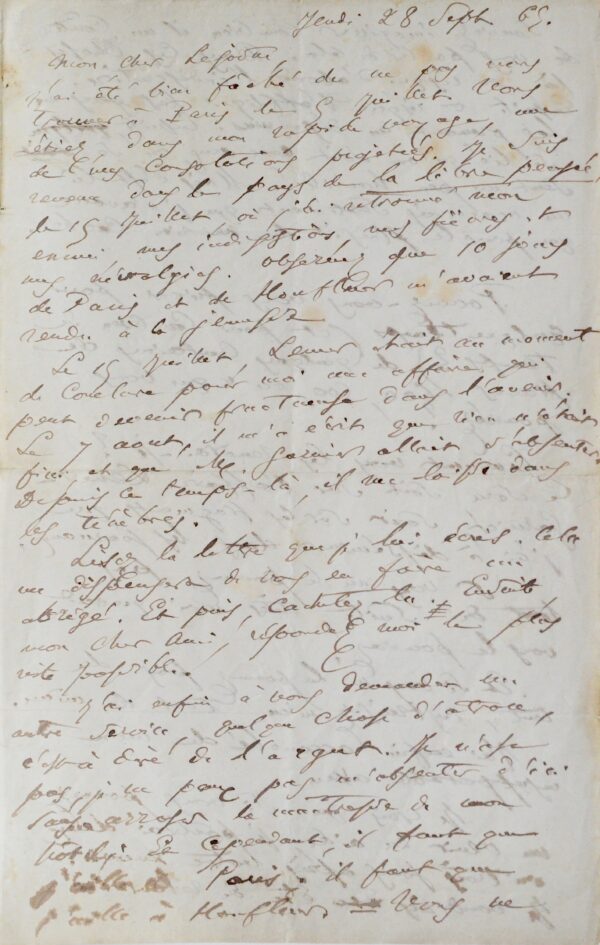 Jeudi 28 Sept 65.
Mon cher
j'ai été bien fâché de ne pas vous
trouver à Paris le 5 Juillet. Vous
étiez, dans mon rapide voyage, une
de mes consolations projetées. Je suis
revenu dans le pays de la libre pensée,
le 15 Juillet où j'ai retrouvé mon
ennui mes indigestions mes fièvres, et
mes névralgies. Observez que 10 jours
de Paris et de Honfleur m'avaient
rendu à la jeunesse
Le 15 Juillet Lemer était au moment
de conclure pour moi une affaire qui
peut devenir fructueuse dans l'avenir,
Le 7 août, il m'a écrit que rien n'était
fini et que M. Garnier allait s'absenter.
Depuis ce temps-là, il me laisse dans
les ténèbres.
Lisez la lettre que je lui écris. Cela
me dispensera de vous en faire un
abrégé. Et puis, cachetez-la. Ensuite
mon cher ami, répondez moi le plus
vite possible.
J'ai enfin à vous demander un
autre service, quelque chose d'atroce,
c'est à dire de l'argent. Je n'ose
pas, je ne peux pas m'absenter d'ici
sans la maîtresse de mon
hôtel. Et cependant, il faut que
j'aille à Paris. il faut que
j'aille à Honfleur – Vous ne